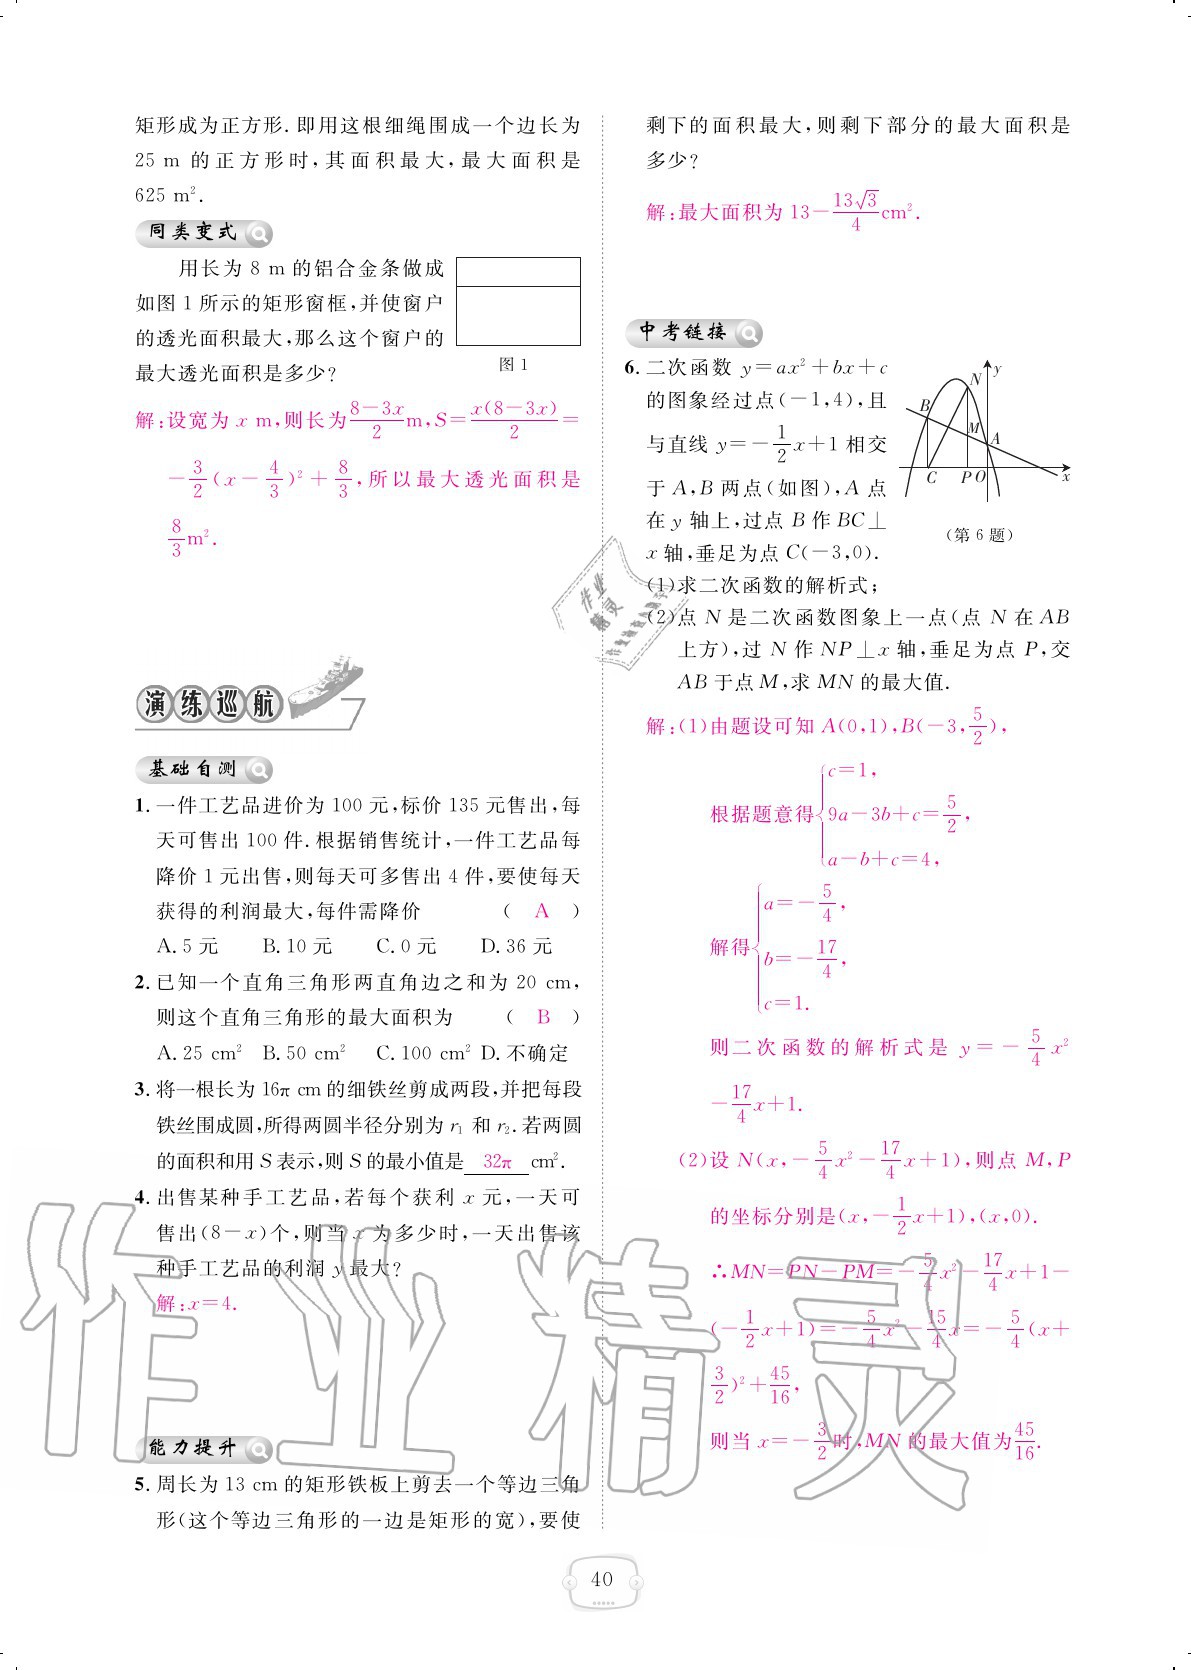 矩形成为正方形. 即用这根细绳围成一个边长为
25 m 的正方形时,其面积最大,最大面积是
625 m².
同类变式
用长为 8 m 的铝合金条做成
如图 1 所示的矩形窗框,并使窗户
的透光面积最大,那么这个窗户的
最大透光面积是多少?
图 1
解:设宽为 x m,则长为(8-3x)/2 m,S=x(8-3x)/2=
-3/2(x-4/3)²+8/3,所以最大透光面积是
8/3 m².
演练巡航
基础自测
1. 一件工艺品进价为 100 元,标价 135 元售出,每
天可售出 100 件. 根据销售统计,一件工艺品每
降价 1 元出售,则每天可多售出 4 件,要使每天
获得的利润最大,每件需降价 ( A )
A. 5 元 B. 10 元 C. 0 元 D. 36 元
2. 已知一个直角三角形两直角边之和为 20 cm,
则这个直角三角形的最大面积为 ( B )
A. 25 cm² B. 50 cm² C. 100 cm² D. 不确定
3. 将一根长为 16π cm 的细铁丝剪成两段,并把每段
铁丝围成圆,所得两圆半径分别为 r₁ 和 r₂. 若两圆
的面积和用 S 表示,则 S 的最小值是 32π cm².
4. 出售某种手工艺品,若每个获利 x 元,一天可
售出(8-x)个,则当 x 为多少时,一天出售该
种手工艺品的利润 y 最大?
解:x=4.
能力提升
5. 周长为 13 cm 的矩形铁板上剪去一个等边三角
形(这个等边三角形的一边是矩形的宽),要使
剩下的面积最大,则剩下部分的最大面积是
多少?
解:最大面积为 13-13√3/4 cm².
中考链接
6. 二次函数 y=ax²+bx+c
的图象经过点(-1,4),且
与直线 y=-1/2x+1 相交
于 A,B 两点(如图),A 点
在 y 轴上,过点 B 作 BC⊥
x 轴,垂足为点 C(-3,0).
B N y M A C P O x
(第 6 题)
(1)求二次函数的解析式;
(2)点 N 是二次函数图象上一点(点 N 在 AB
上方),过 N 作 NP⊥x 轴,垂足为点 P,交
AB 于点 M,求 MN 的最大值.
解:(1)由题设可知 A(0,1),B(-3,5/2),
根据题意得{c=1,
9a-3b+c=5/2,
a-b+c=4,
解得{a=-5/4,
b=-17/4,
c=1.
则二次函数的解析式是 y=-5/4x²
-17/4x+1.
(2)设 N(x,-5/4x²-17/4x+1),则点 M,P
的坐标分别是(x,-1/2x+1),(x,0).
∴MN=PN-PM=-5/4x²-17/4x+1-
(-1/2x+1)=-5/4x²-15/4x=-5/4(x+
3/2)²+45/16,
则当 x=-3/2时,MN 的最大值为45/16.
作业精灵
作业精灵
40